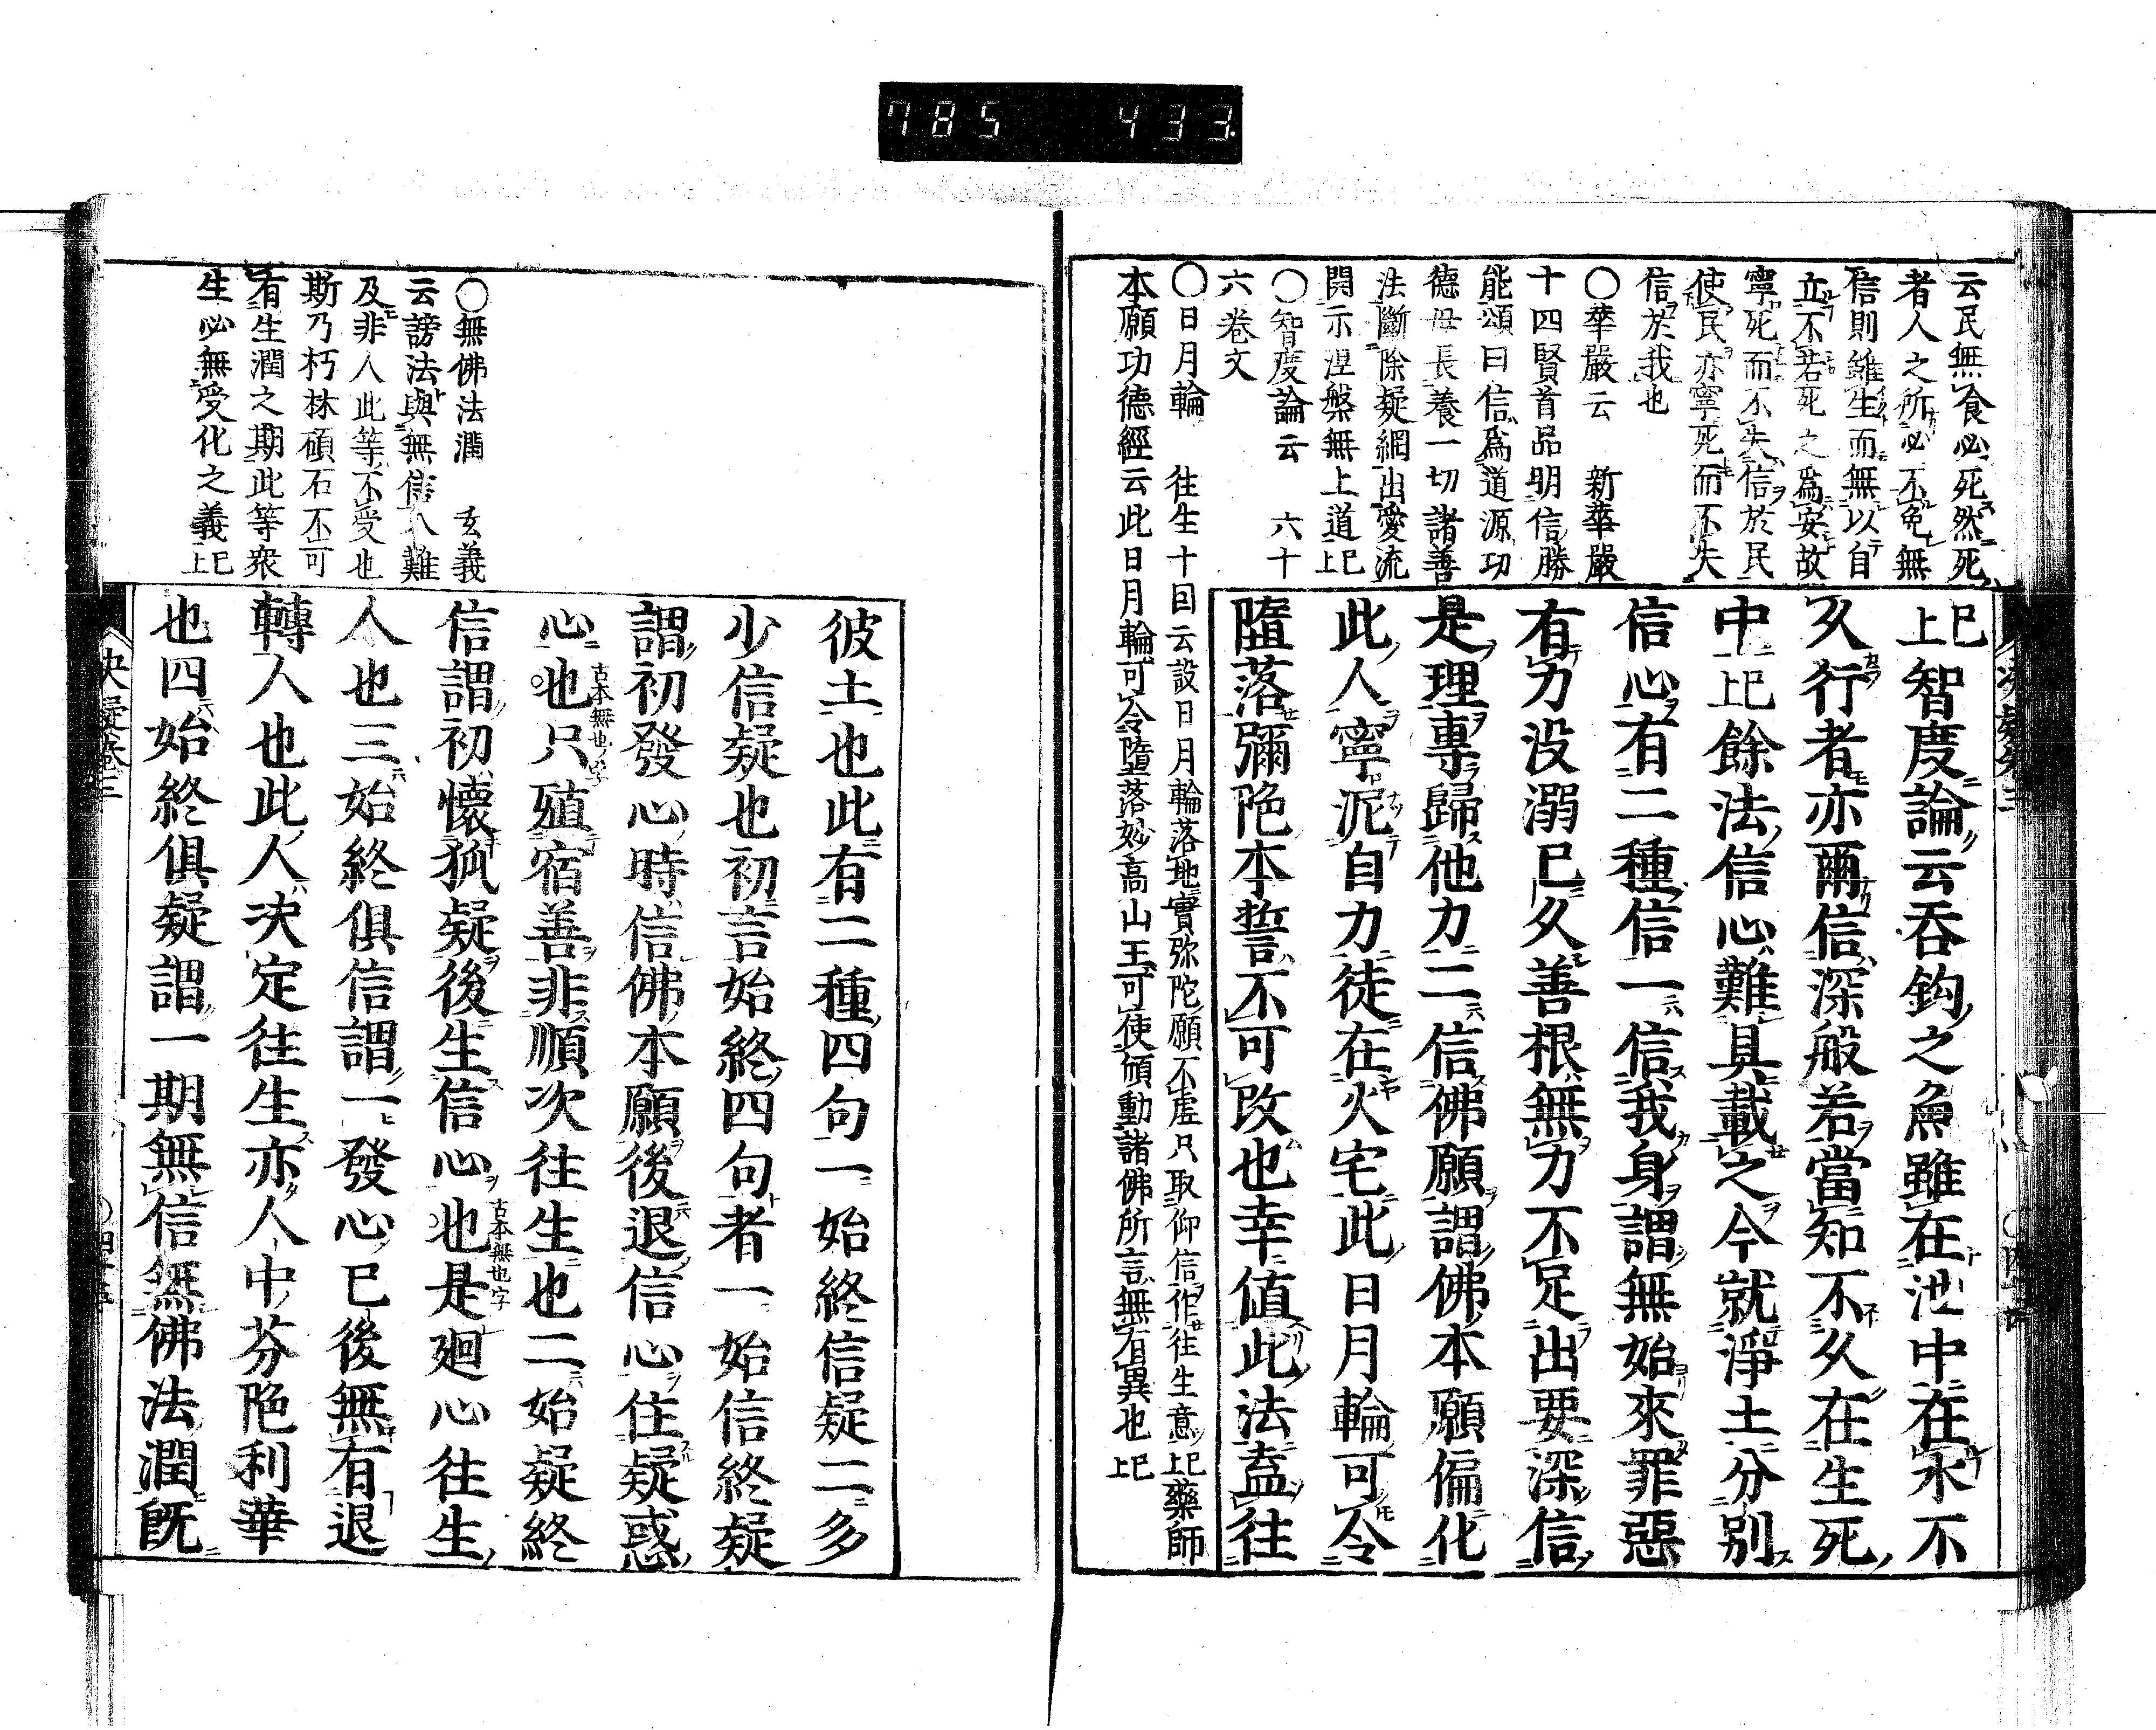 785 433.
云民無食必死然死
者人之所必不免無
信則雖生而無以自
立不若死之爲安故
寧死而不失信於民
使民亦寧死而不失
信於我也
○華嚴云 新華嚴
十四賢首品明信勝
能頌曰信爲道源功
德母長養一切諸善
法斷除疑網出愛流
開示涅槃無上道已上
○智度論云 六十
六卷文
○日月輪 往生十回云設日月輪落地實弥陀願不虛只取仰信作往生意已上藥師
本願功德經云此日月輪可令墮落妙高山王可使傾動諸佛所言無有異也已上
已上智度論云吞鈎之魚雖在池中在水不
久行者亦爾信深般若當知不久在生死
中已上餘法信心難具載之今就淨土分別
信心有二種信一信我身謂無始來罪惡
有力没溺已久善根無力不足出要深信
是理專歸他力二信佛願謂佛本願偏化
此人寧泥自力徒在火宅此日月輪可令
墮落彌陀本誓不可改也幸値此法盍往
○無佛法潤 玄義
云謗法與無信八難
及非人此等不受也
斯乃朽林碩石不可
有生潤之期此等衆
生必無受化之義已上
彼土也此有二種四句一始終信疑二多
少信疑也初言始終四句者一始信終疑
謂初發心時信佛本願後退信心住疑惑
心也只殖宿善非順次往生也二始疑終
古本無也字
信謂初懷狐疑後生信心也是廻心往生
古本無也字
人也三始終俱信謂一發心已後無有退
轉人也此人決定往生亦人中芬陀利華
也四始終俱疑謂一期無信無佛法潤既